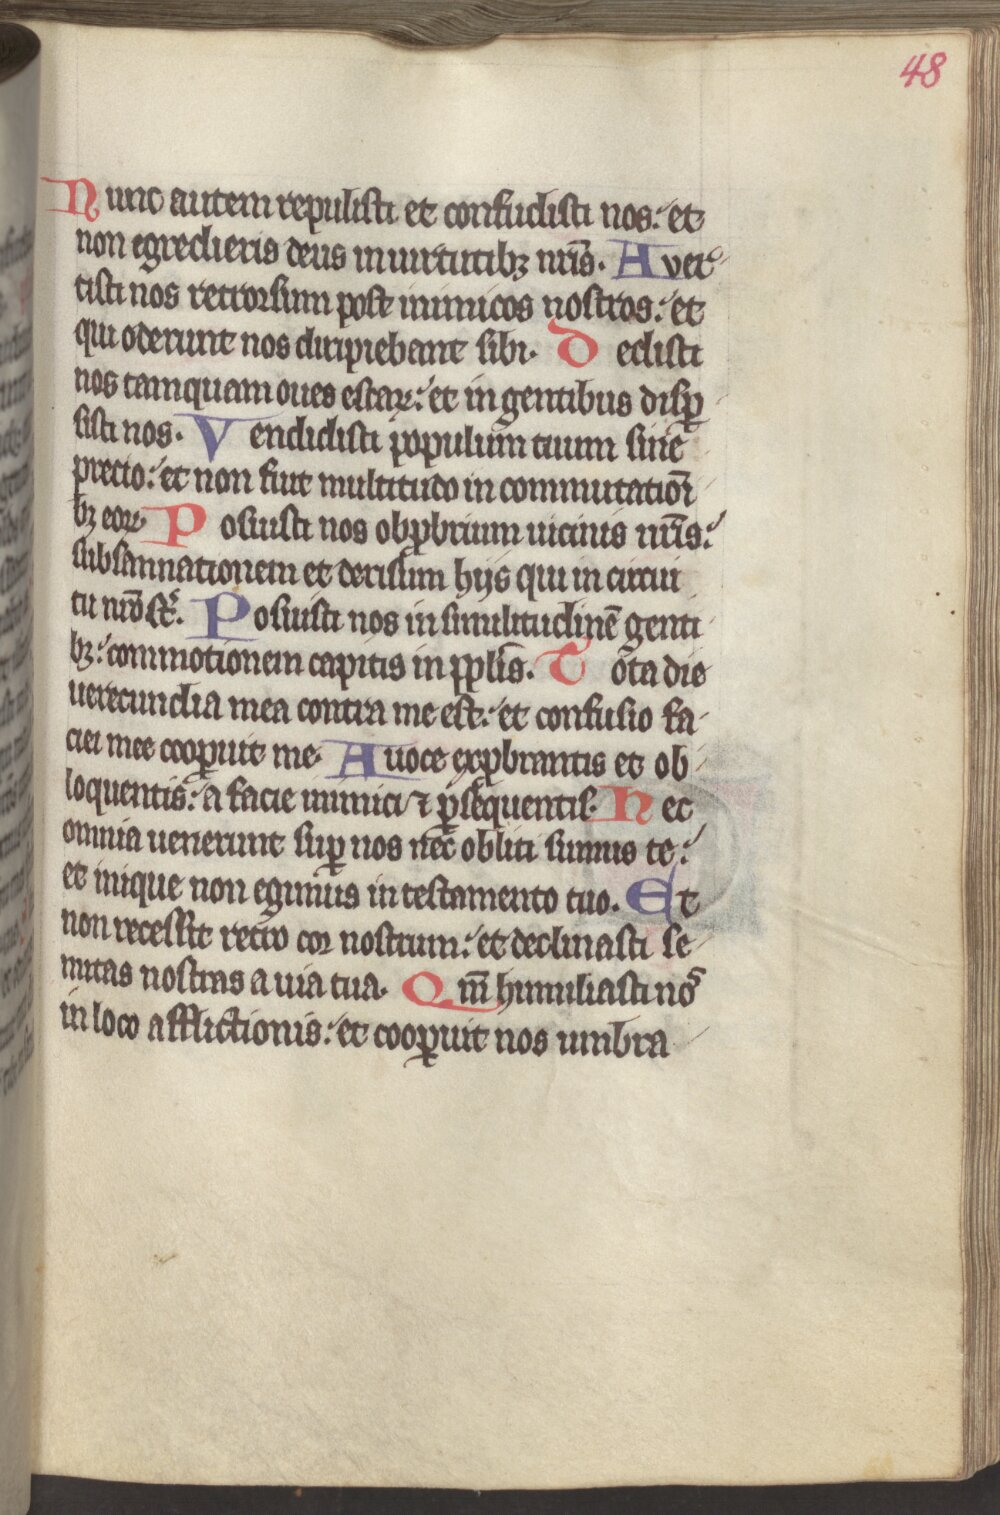 48
Nunc autem repulisti et confudisti nos: et
non egredieris deus in uirtutibꝫ nr̄is. Auer
tisti nos retrorsum post inimicos nostros: et
qui oderunt nos diripiebant sibi. Dedisti
nos tamquam oues escaꝝ: et in gentibus disꝑ
sisti nos. Vendidisti populum tuum sine
precio: et non fuit multitudo in commutatiōi
bꝫ eoꝝ. Posuisti nos obꝓbrium uicinis nr̄is:
subsannationem et derisum hijs qui in circui
tu nr̄o st̄. Posuisti nos in similitudinē genti
bꝫ: commotionem capitis in ppl̄is. Tota die
uerecundia mea contra me est: et confusio fa
ciei mee cooꝑuit me. A uoce exꝓbrantis et ob
loquentis: a facie inimici ⁊ ꝑsequentis. Hec
omnia uenerunt suꝑ nos nec obliti sumus te:
et inique non egimus in testamento tuo. Et
non recessit retro cor nostrum: et declinasti se
mitas nostras a uia tua. Qm̄ humiliasti nos
in loco afflictionis: et cooꝑuit nos umbra